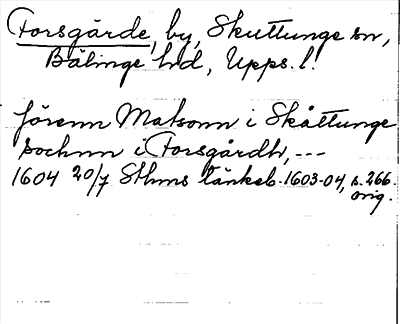 Forsgärde, by, Skuttunge sn,
Bälinge hd, Upps. l.
Jörenn Matsonn i Skåttunge
sochnn i Forsgårdh, ---
1604 20/7 Sthms tänkeb. 1603-04, s. 266.
orig.